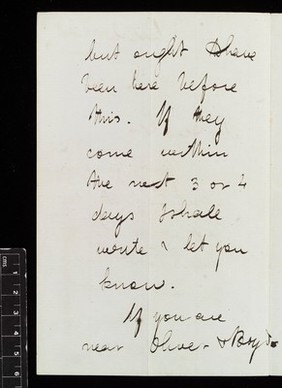 but ought to have
been here before
this. If they
come within
the next 3 or 4
days I shall
write & let you
know.
If you are
near Olive - &